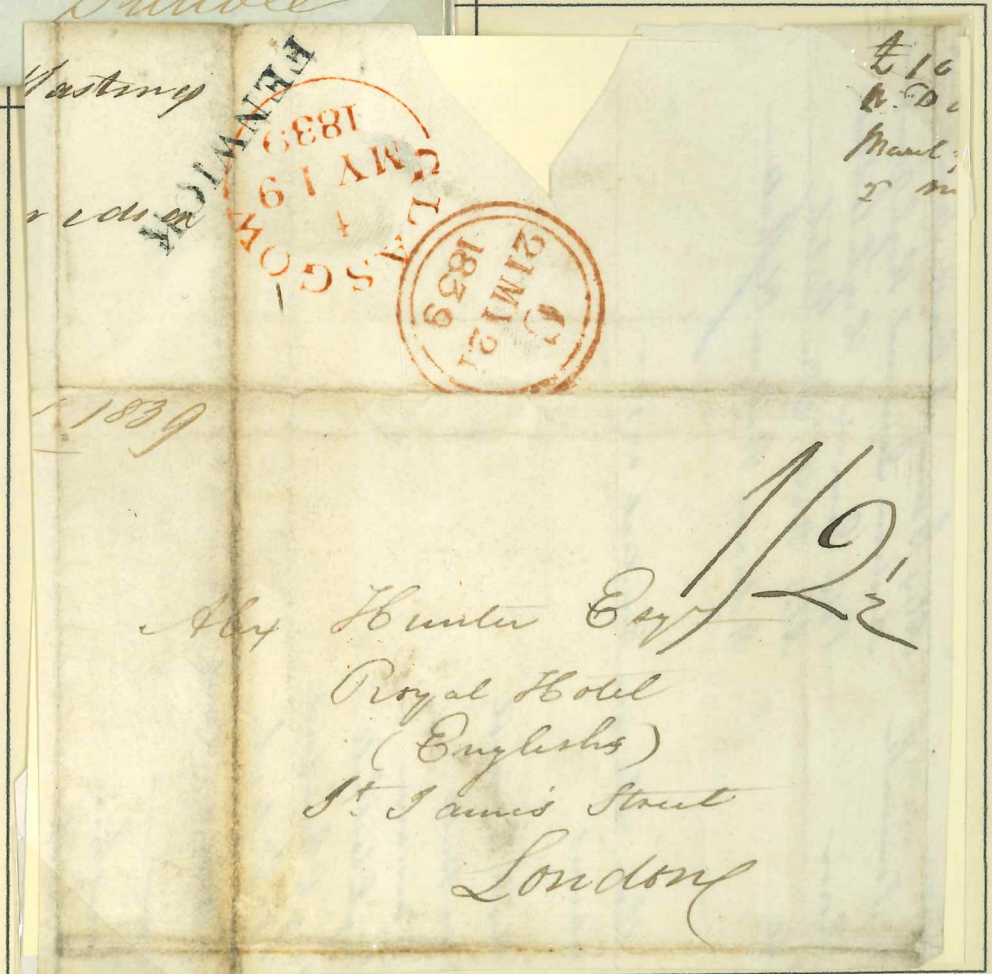 Dundee
Hastings
FENWICK
GLASGOW
MY 19
1839
C
21MY21
1839
£10
1839
1/2½
Alex Hunter Esqr
Royal Hotel
(Englishs)
St. James's Street
London